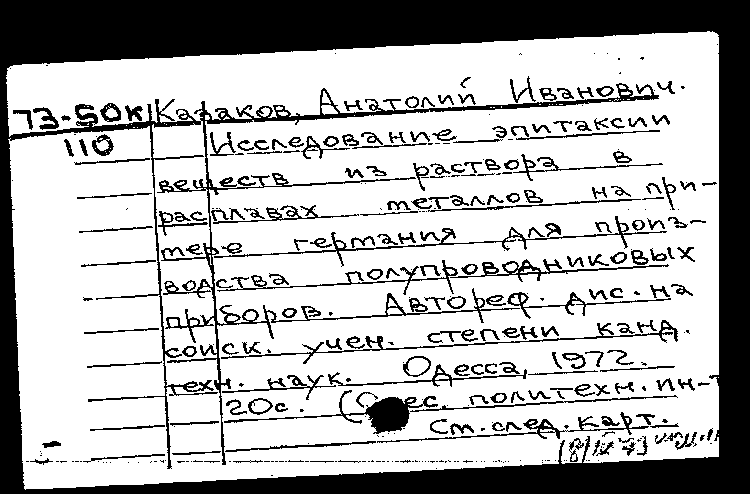 73-50к Казаков, Анатолий Иванович.
110 Исследование эпитаксии
веществ из раствора в
расплавах металлов на при-
мере германия для произ-
водства полупроводниковых
приборов. Автореф. дис. на
соиск. учен. степени канд.
техн. наук. Одесса, 1972.
20с. ( политехн. ин-т
См. след. карт.